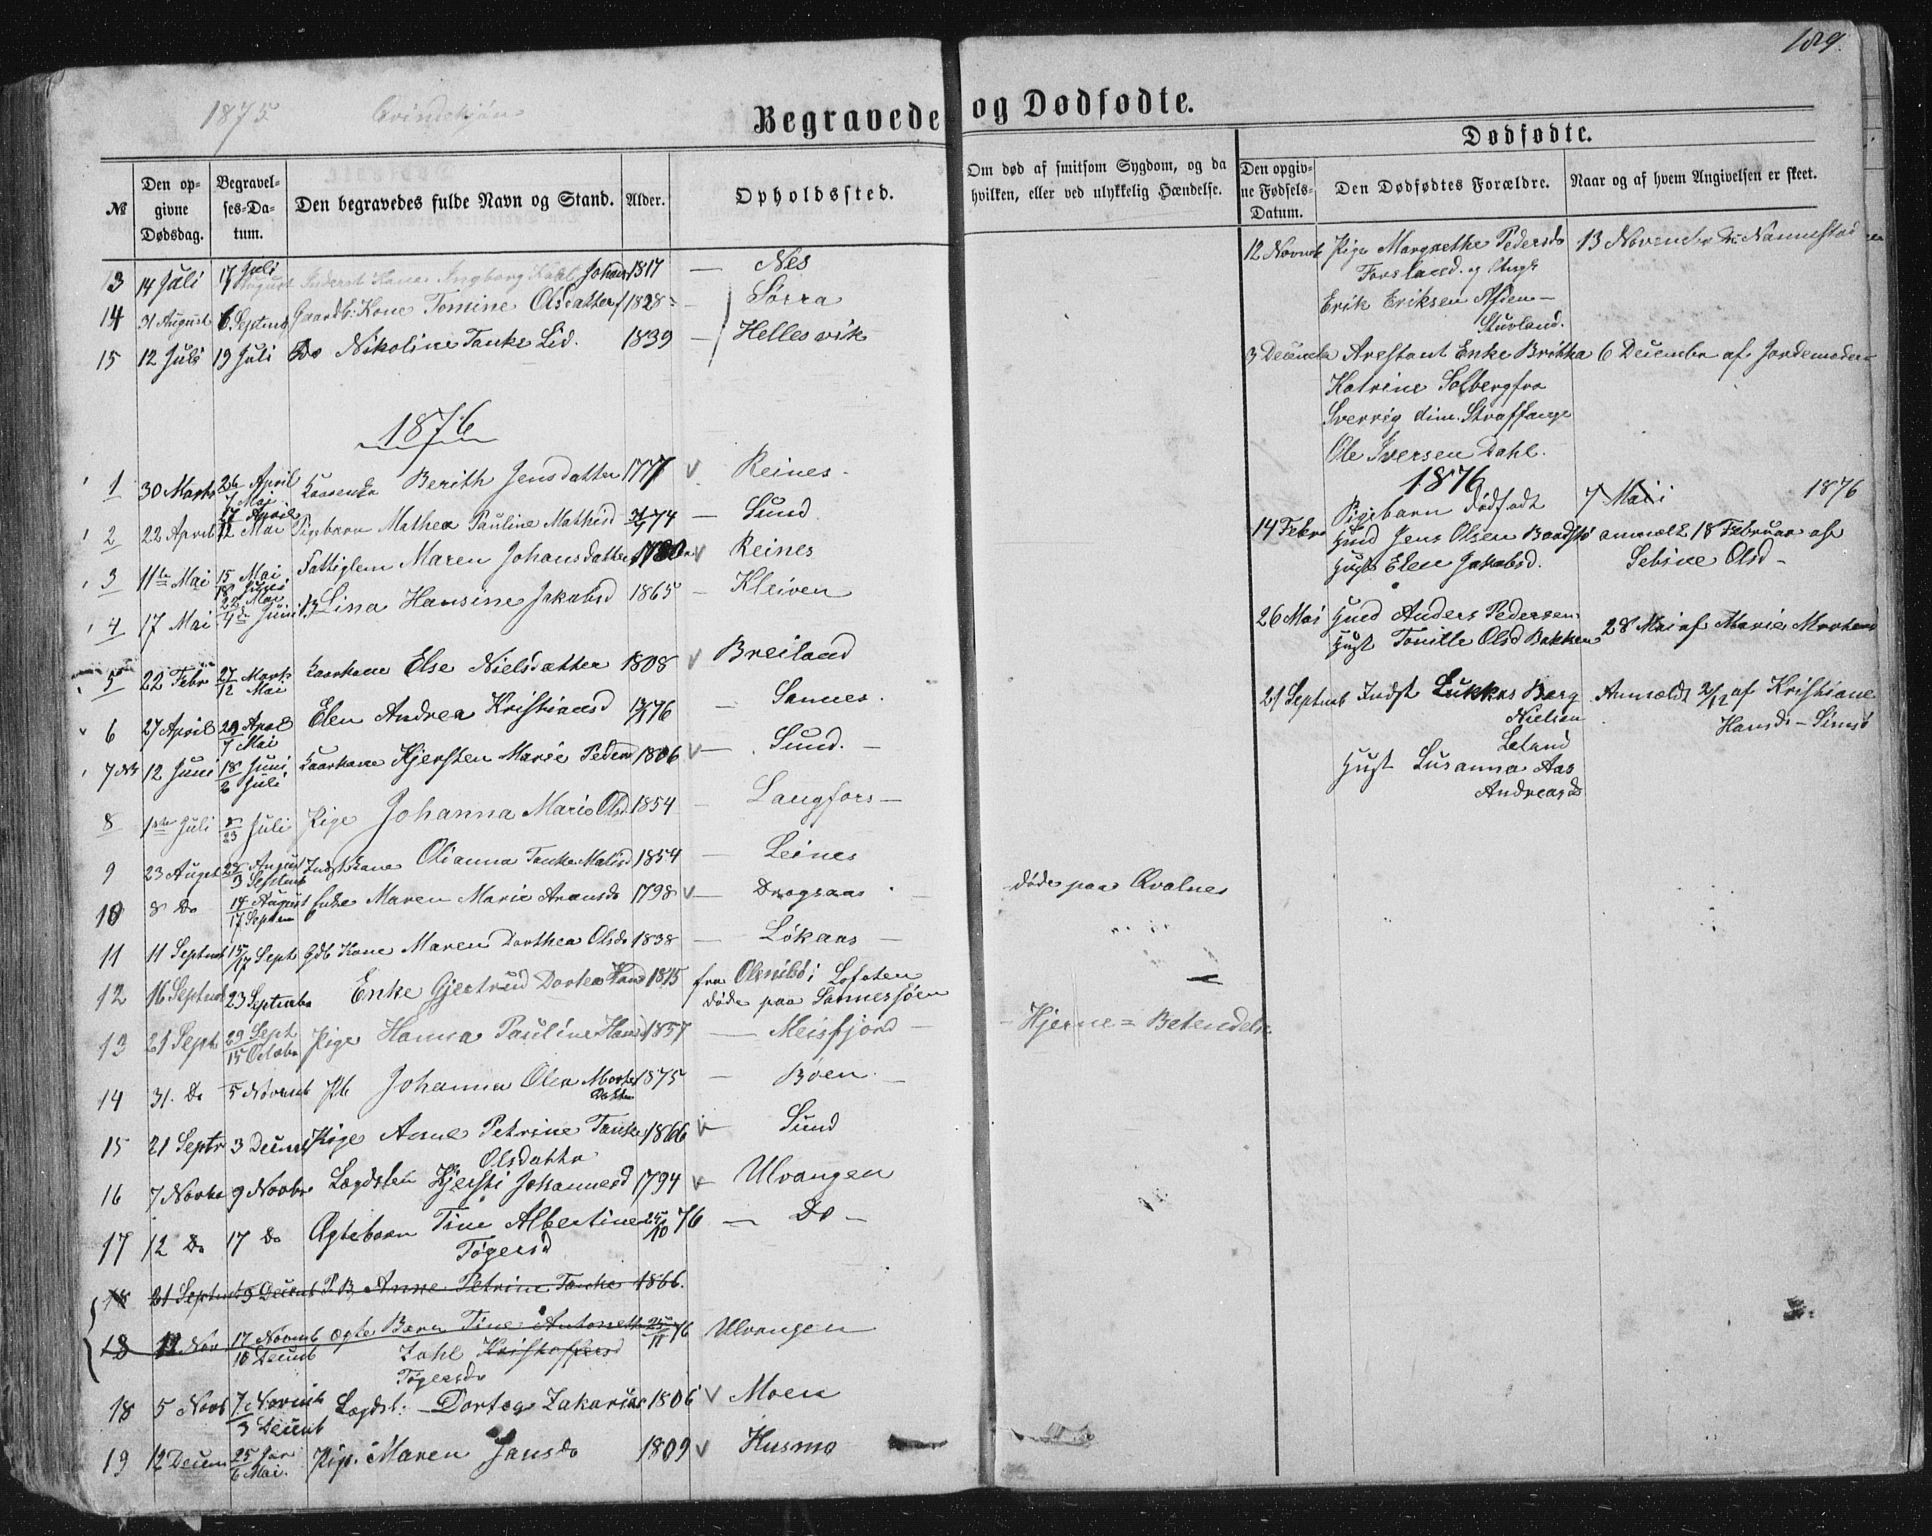 189.
1875 Qvindekjøn
Begravede og Dødfødte.
Dødfødte.
№
Den opgivne Dødsdag.
Begravelses-Datum.
Den begravedes fulde Navn og Stand.
Alder.
Opholdssted.
Om død af smitsom Sygdom, og da hvilken, eller ved ulykkelig Hændelse.
Den opgivne Fødsels-Datum.
Den Dødfødtes Forældre.
Naar og af hvem Angivelsen er skeet.
13 14 Juli 17 Juli Kone Ingborg 1817 — Nes
14 31 August 6 Septemb Gaardb: Kone Tomine Olsdatter 1828 — Sørra
15 12 Juli 19 Juli Do Nikoline Tanke Lid. 1839 — Hellesvik
1876
1 30 Marts 26 April 7 Mai Berith Jensdatter 1777 Reines
2 22 April 27 April 12 Mai Pigebarn Mathea Pauline Mathisd 74 — Sund
3 11te Mai 15 Mai 18 Juni Fattiglem Maren Johansdatter 1780 Reines
4 17 Mai 22 Mai 4de Juni Lina Hansine Jakobsd 1865 — Kleiven
5 22 Febr 27 Marts 12 Mai Kaarkone Else Nielsdatter 1808 Breiland
6 27 April 29 April 7 Mai Elen Andrea Kristiansd 76 — Sannes
7 12 Juni 18 Juni 2 Juli Kaarkone Kjersten Marie Peders 1806 — Sund. —
8 1ste Juli 8 23 Juli Pige Johanna Marie Olsd 1854 — Langfors —
9 23 Augst August 3 Septemb Indst Kone Olianna Tanke Matisd 1854 — Leines
10 8 Do 14 August 17 Septem Enke Maren Marie Aransd 1798 — Dragsaas døde paa Qvalnes
11 11 Septemb 15/17 Sept Gdb Kone Maren Dorthea Olsd 1838 — Løkaas —
12 16 Septemb 23 Septembr Enke Gjertrud Dortea Hansd 1815 fra i Lofoten
døde paa Sannessøen
13 21 Sept 29 Sept 15 Octobr Pige Hanna Pauline Hansd 1857 — Meisfjord — Hjerne = Betendelse
14 31. Do 5 Novemb Pb Johanna Olea Morten 1875 — Bøen. —
15 21 Septr 3 Decemb Pige Anne Petrine Tanke 1866 Sund
Olsdatter
16 7 Novbr 9 Novbr Lægdslem Kjersti Johannesd 1794 Ulvangen
17 12 Do 17 Do Ægtebarn Tine Albertine 25/10 76 — Do —
Tøgersd
18 21 Septemb 3 Decemb P.B Anne Petrine Tanke 1866.
18 12 Nov 17 Novemb 10 Decemb ægte Barn Tine Antonette 25/11 76 Ulvangen
Zahl Kristoffersd
Tøgersdr
18 5 Novb 7 Novemb 3 Decemb Lægdsl: Dortea Zakarias 1806 Moen
19 12 Decem 25 Jan 6 Mai. Pige Maren Jansdr 1809 Husmo
12 Novemb Pige Margrethe Pedersdr 13 November Nannestad
Forsland og Ungk
Erik Eriksen Alsten—
Stuvland.
3 Decembr Arestant Enke Britha 6 December af Jordemoder
Katrine Solberg fra
Sverrig dim. Straffange
Ole Iversen Dahl.
1876
Pigebarn dødfødt 7 Mai i 1876
14 Febr Hmd Jens Olsen anmeldt 18 Februar af
Hust Elen Jakobsd. Sebine Olsd —
26 Mai Hmd Anders Pedersen 28 Mai af Marie
Hust Tonille Olsd Bakken
21 Septemb Indst Lukkas Berg Anmeldt 2/12 af Kristiane
Nielsen Hansd —
Leland
Hust Susanna Aas
Andreasd